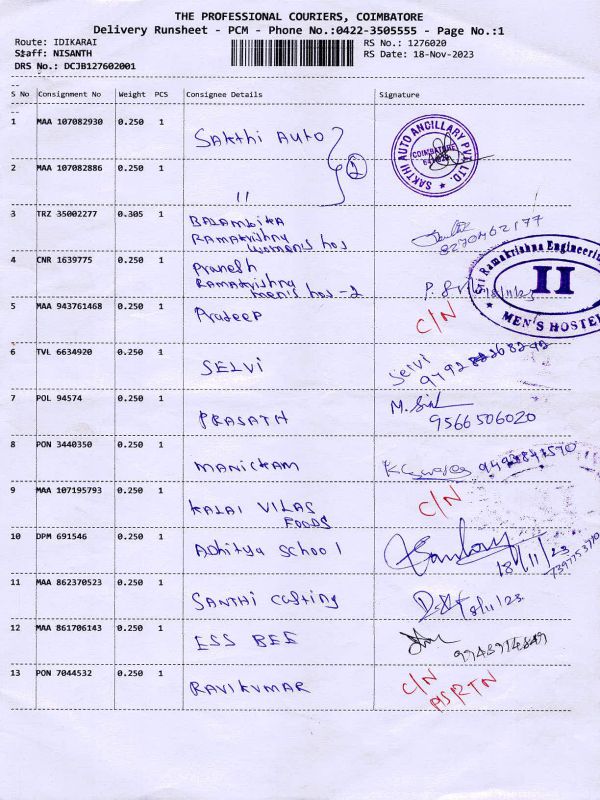 THE PROFESSIONAL COURIERS, COIMBATORE
Delivery Runsheet - PCM - Phone No.:0422-3505555 - Page No.:1
Route: IDIKARAI
RS No.: 1276020
Staff: NISANTH
RS Date: 18-Nov-2023
DRS No.: DCJB127602001
S No Consignment No Weight PCS Consignee Details Signature
1 MAA 107082930 0.250 1 Sakthi Auto
2 MAA 107082886 0.250 1 11
2
SAKTHI AUTO ANCILLARY PVT LTD.
COIMBATORE
3 TRZ 35002277 0.305 1 Balambika
Ramakrishny
women's hos
8270462177
4 CNR 1639775 0.250 1 Pranesh
Ramakrishny
men's hos-2
18/11/23
Sri Ramakrishna Engineering
II
MEN'S HOSTEL
5 MAA 943761468 0.250 1 Pradeep C/N
6 TVL 6634920 0.250 1 SELVI Selvi
7 POL 94574 0.250 1 PRASATH
9566506020
8 PON 3440350 0.250 1 MANICKAM
9 MAA 107195793 0.250 1 KALAI VILAS
FOODS
C/N
10 DPM 691546 0.250 1 Adhitya School
18/11/23
11 MAA 862370523 0.250 1 SANTHI Casting
18/11/23.
12 MAA 861706143 0.250 1 ESS BEE
13 PON 7044532 0.250 1 RAVIKUMAR C/N